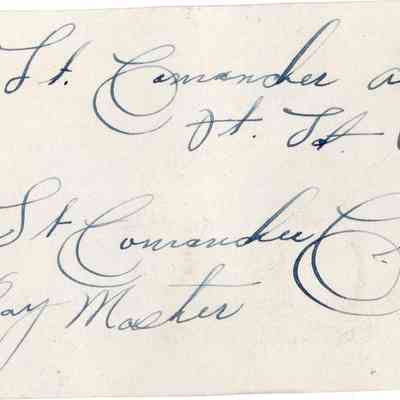 Lt. Comander a
Jt. Lt.
Lt Comander C
Pay Master